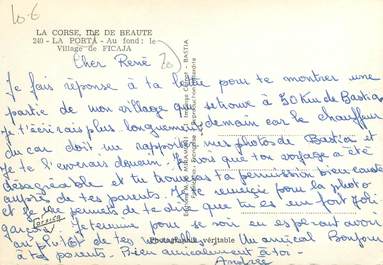 10-6
LA CORSE, ILE DE BEAUTE
240 - LA PORTA - Au fond : le
Village de FICAJA
Cher René
20
Je fais réponse à ta lettre pour te montrer une
partie de mon village qui se trouve à 50 Km de Bastia
je t'écrirais plus longuement demain car le chauffeur
du car doit me rapporter mes photos de Bastia et
je te l'enverais demain. Je vois que ton voyage a été
désagréable et tu trouves ta permission bien
auprès de tes parents. Je te remercie pour la photo
et je me permets de te dire que tu es un fort joli
garçon. Je termine pour ce soir en esperant avoir
au plus tôt de tes nouvelles. Un amical Bonjour
à tes parents. Bien amicalement à toi -
Andrée
BASTIA
Photographie véritable